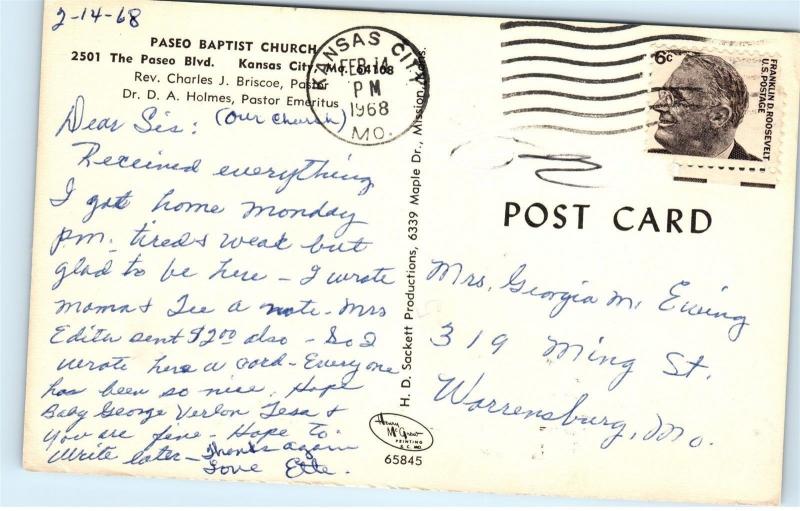 2-14-68
PASEO BAPTIST CHURCH
2501 The Paseo Blvd. Kansas City, Mo. 64108
Rev. Charles J. Briscoe, Pastor
Dr. D. A. Holmes, Pastor Emeritus
Dear Sis: (Our Church)
Received everything
I got home Monday
pm. tired & weak but
glad to be here - I wrote
Mama & Lee a note. Mrs
Edith sent $2.00 also - So I
wrote her a card - Everyone
has been so nice. Hope
Baby George Verlon Tesa &
you are fine - Hope to
write later - Thanks again
Love Ette.
H. D. Sackett Productions, 6339 Maple Dr., Mission, Kans.
Henry
McGrew
PRINTING
K C MO
65845
KANSAS CITY
FEB 14
PM
1968
MO.
6c
FRANKLIN D. ROOSEVELT
U.S. POSTAGE
POST CARD
Mrs. Georgia M. Ewing
319 Ming St.
Warrensburg, Mo.